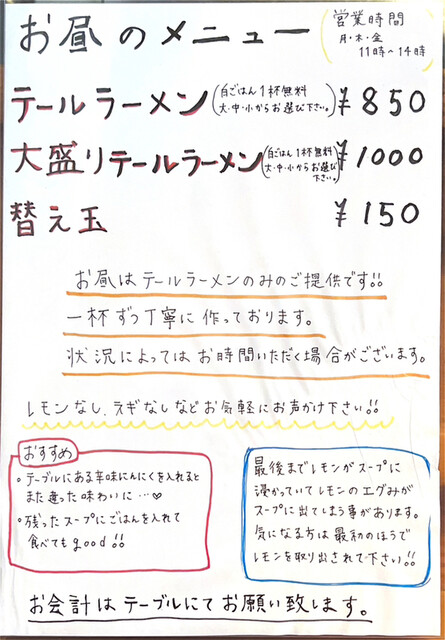 お昼のメニュー
営業時間
月・木・金
11時~14時
テールラーメン(白ごはん1杯無料 ¥850
大・中・小からお選び下さい。)
大盛りテールラーメン(白ごはん1杯無料 ¥1000
大・中・小からお選び
下さい。)
替え玉 ¥150
お昼はテールラーメンのみのご提供です!!
一杯ずつ丁寧に作っております。
状況によってはお時間いただく場合がございます。
レモンなし、ネギなしなどお気軽にお声かけ下さい!!
おすすめ
・テーブルにある辛味にんにくを入れると
また違った味わいに…♡
・残ったスープにごはんを入れて
食べてもgood!!
最後までレモンがスープに
浸かっていてレモンのエグみが
スープに出てしまう事があります。
気になる方は最初のほうで
レモンを取り出されて下さい!!
お会計はテーブルにてお願い致します。